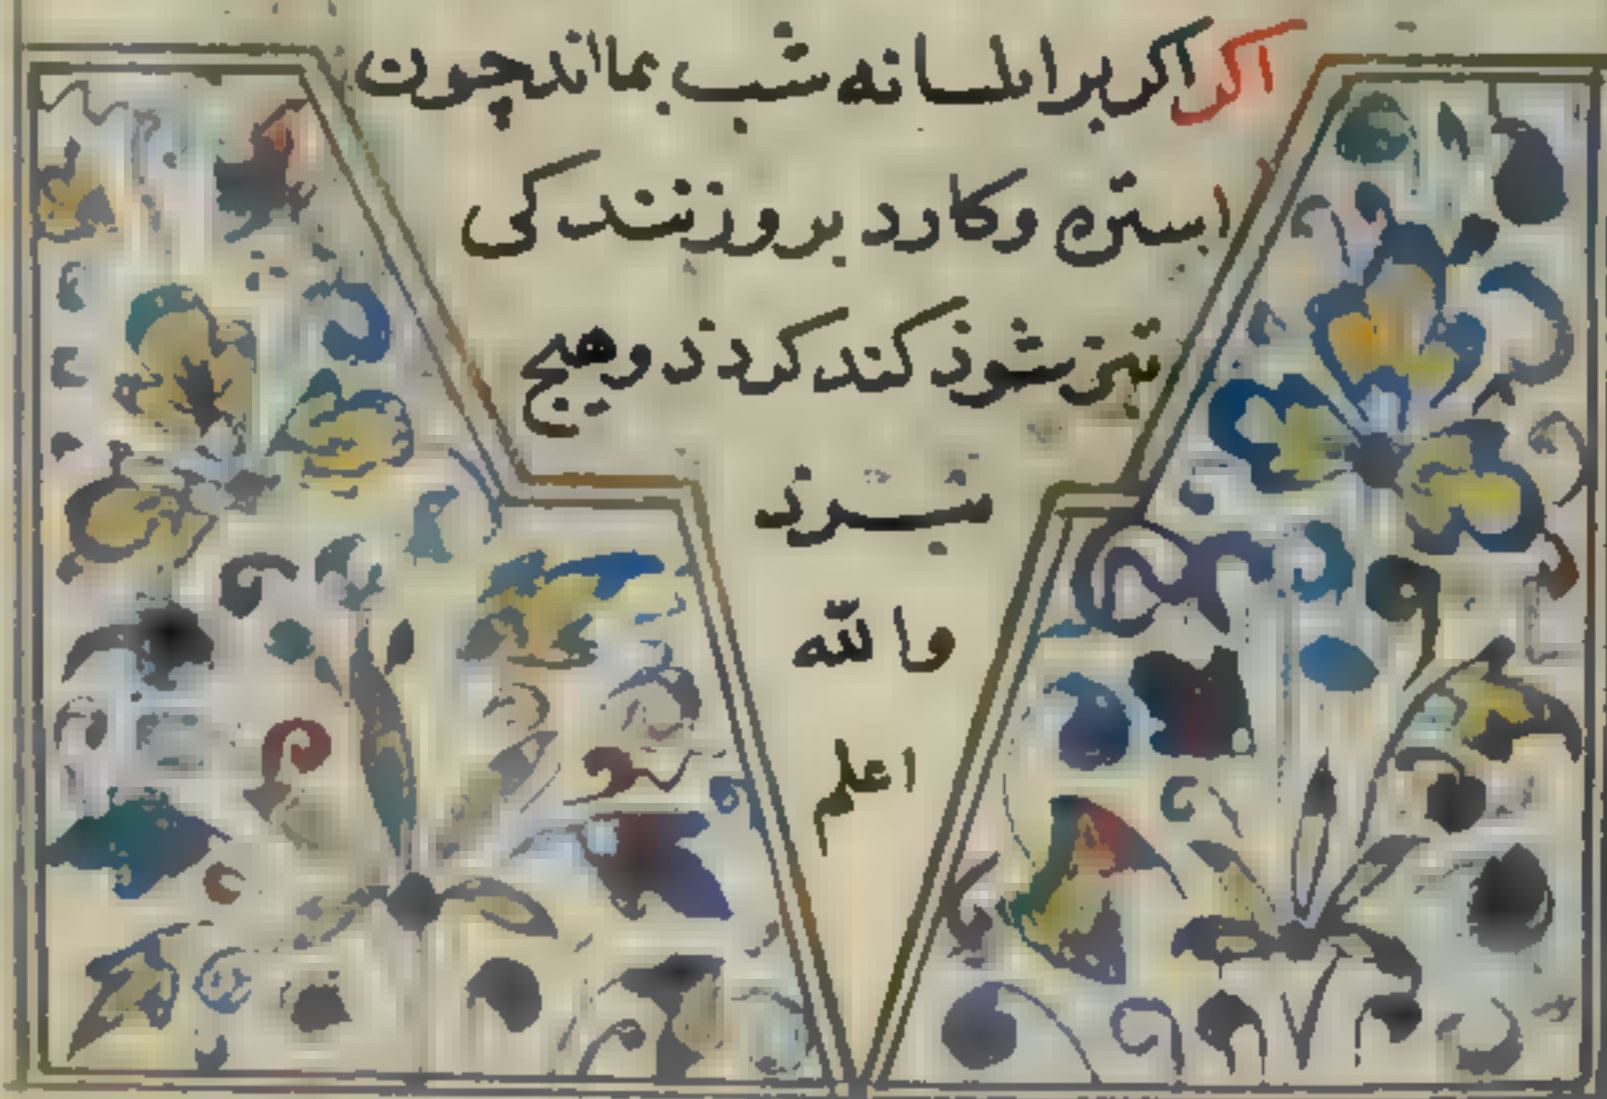 اکر اکر بر املسانه شب بمااند چون
استره وکارد بروزنند کی
تیز شوذ کند کردذ وهیج
نبرذ
والله
اعلم